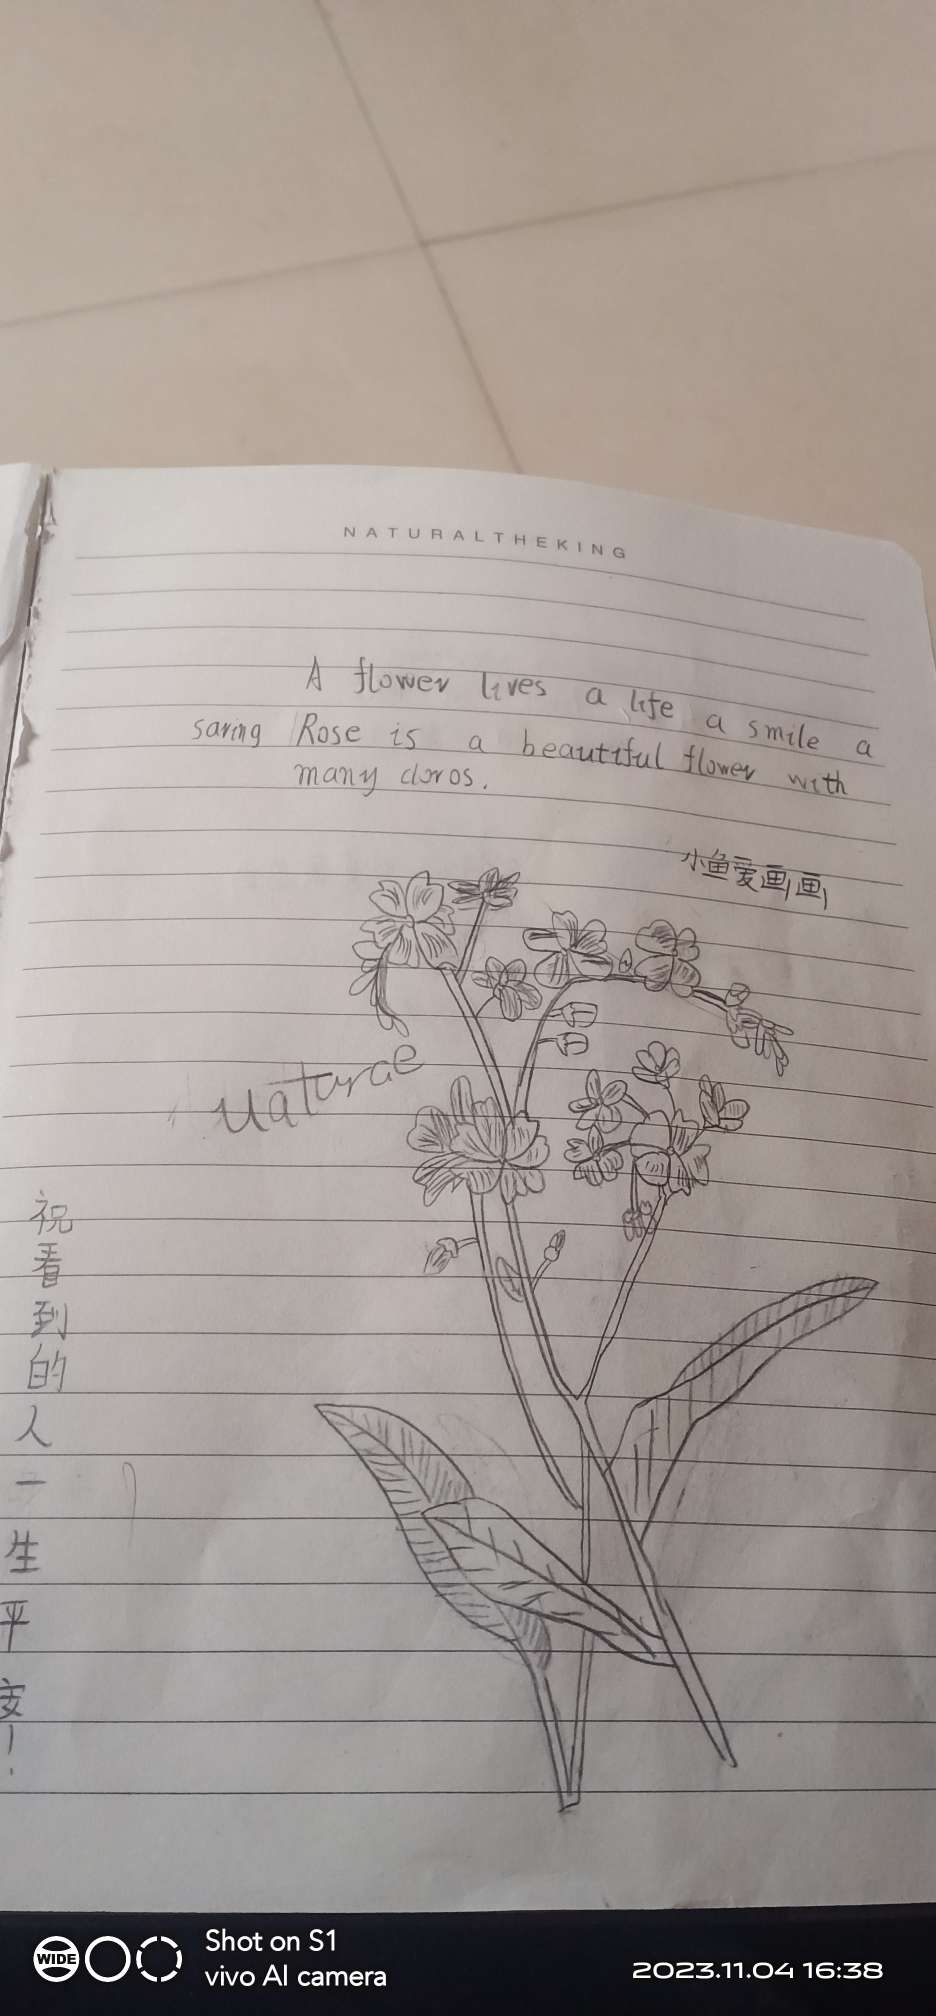 NATURALTHEKING
A flower lives a life a smile a
saring Rose is a beautiful flower with
many cloros.
小鱼爱画画
Naturae
祝看到的人一生平安！
WIDE
Shot on S1
vivo AI camera
2023.11.04 16:38